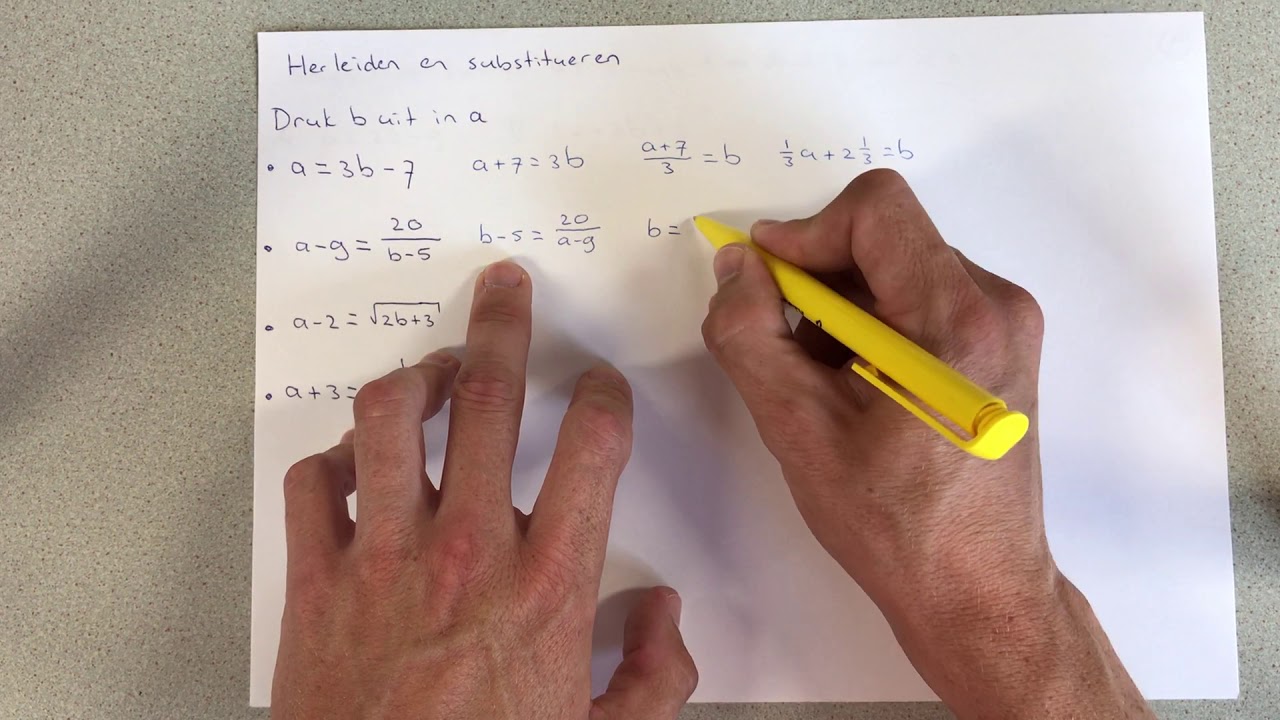 Herleiden en substitueren
Druk b uit in a
• a = 3b - 7 a + 7 = 3b \frac{a+7}{3} = b \frac{1}{3}a + 2\frac{1}{3} = b
• a - 9 = \frac{20}{b-5} b - 5 = \frac{20}{a-9} b =
• a - 2 = \sqrt{2b+3}
• a + 3 =